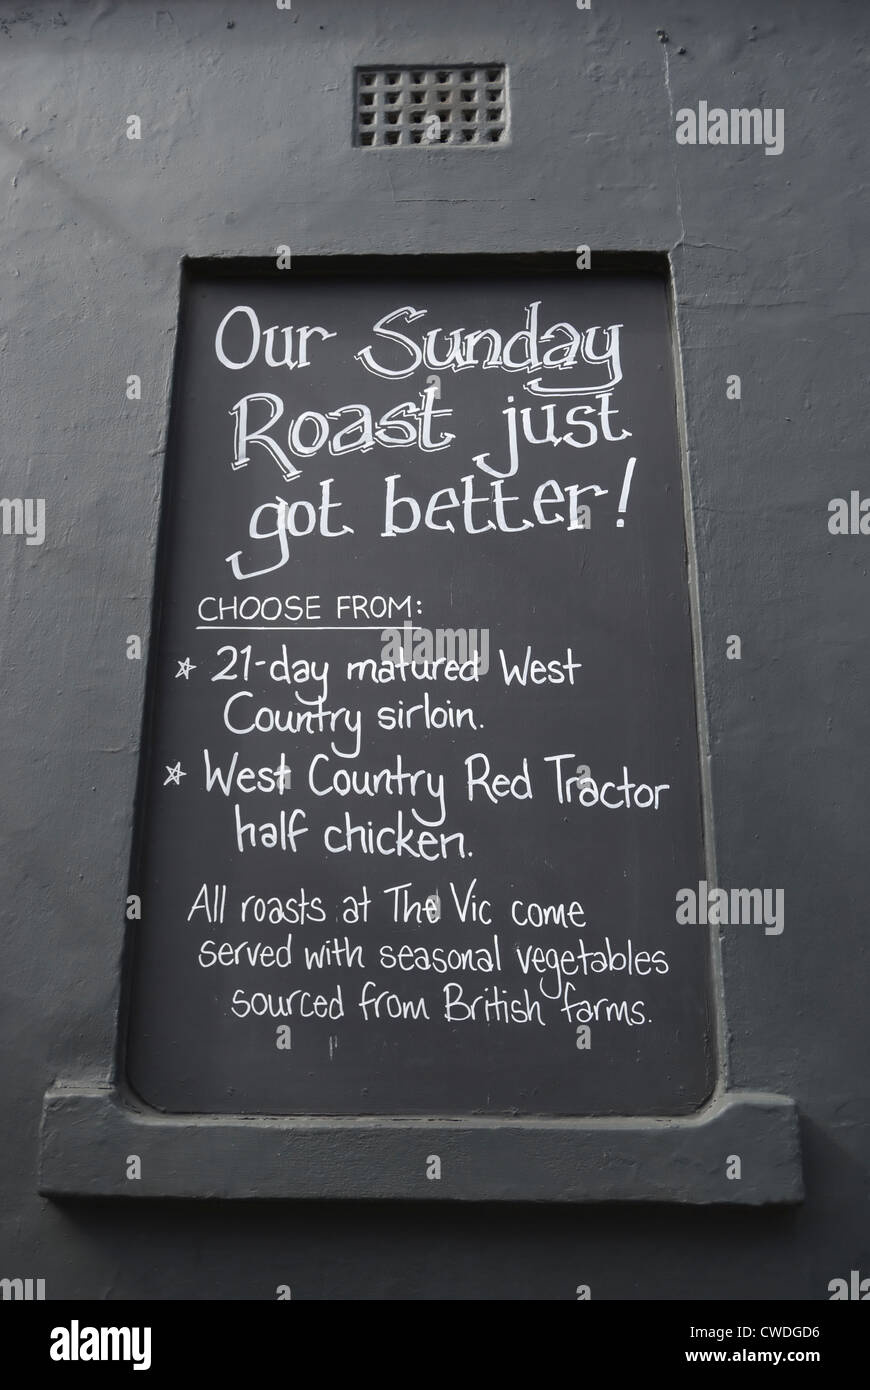 Our Sunday
Roast just
got better!
CHOOSE FROM:
☆ 21-day matured West
Country sirloin.
☆ West Country Red Tractor
half chicken.
All roasts at The Vic come
served with seasonal vegetables
sourced from British farms.
alamy
alamy
Image ID: CWDGD6
www.alamy.com